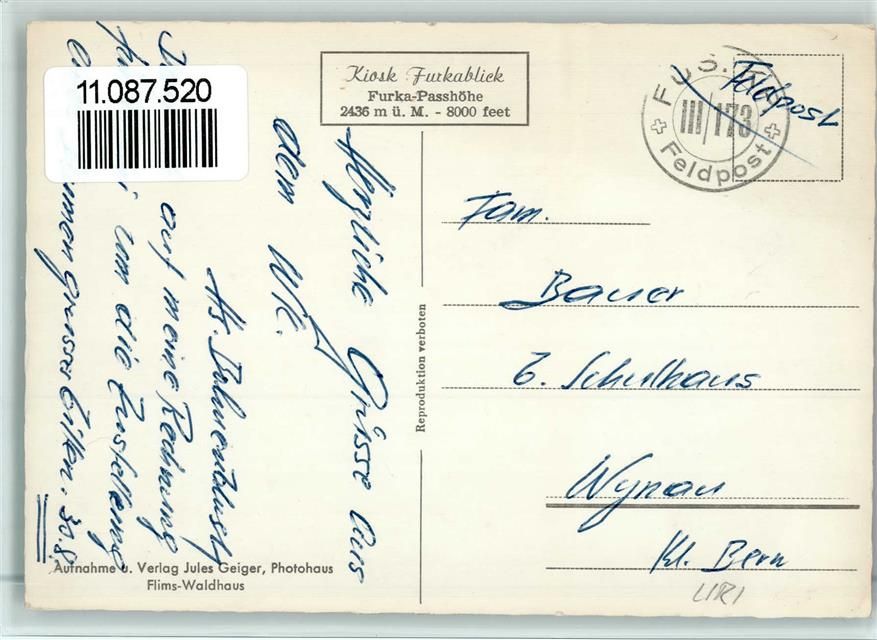 11.087.520
Kiosk Furkablick
Furka-Passhöhe
2436 m ü. M. - 8000 feet
FÜS.
III/173
Feldpost
Feldpost
Herzliche Grüsse aus
dem WK.
auf meine Rechnung
um die Zustellung
grosser Eiltn. 30.8.
Fam.
Bauer
b. Schulhaus
Wynau
Kt. Bern
URI
Reproduktion verboten
Aufnahme u. Verlag Jules Geiger, Photohaus
Flims-Waldhaus